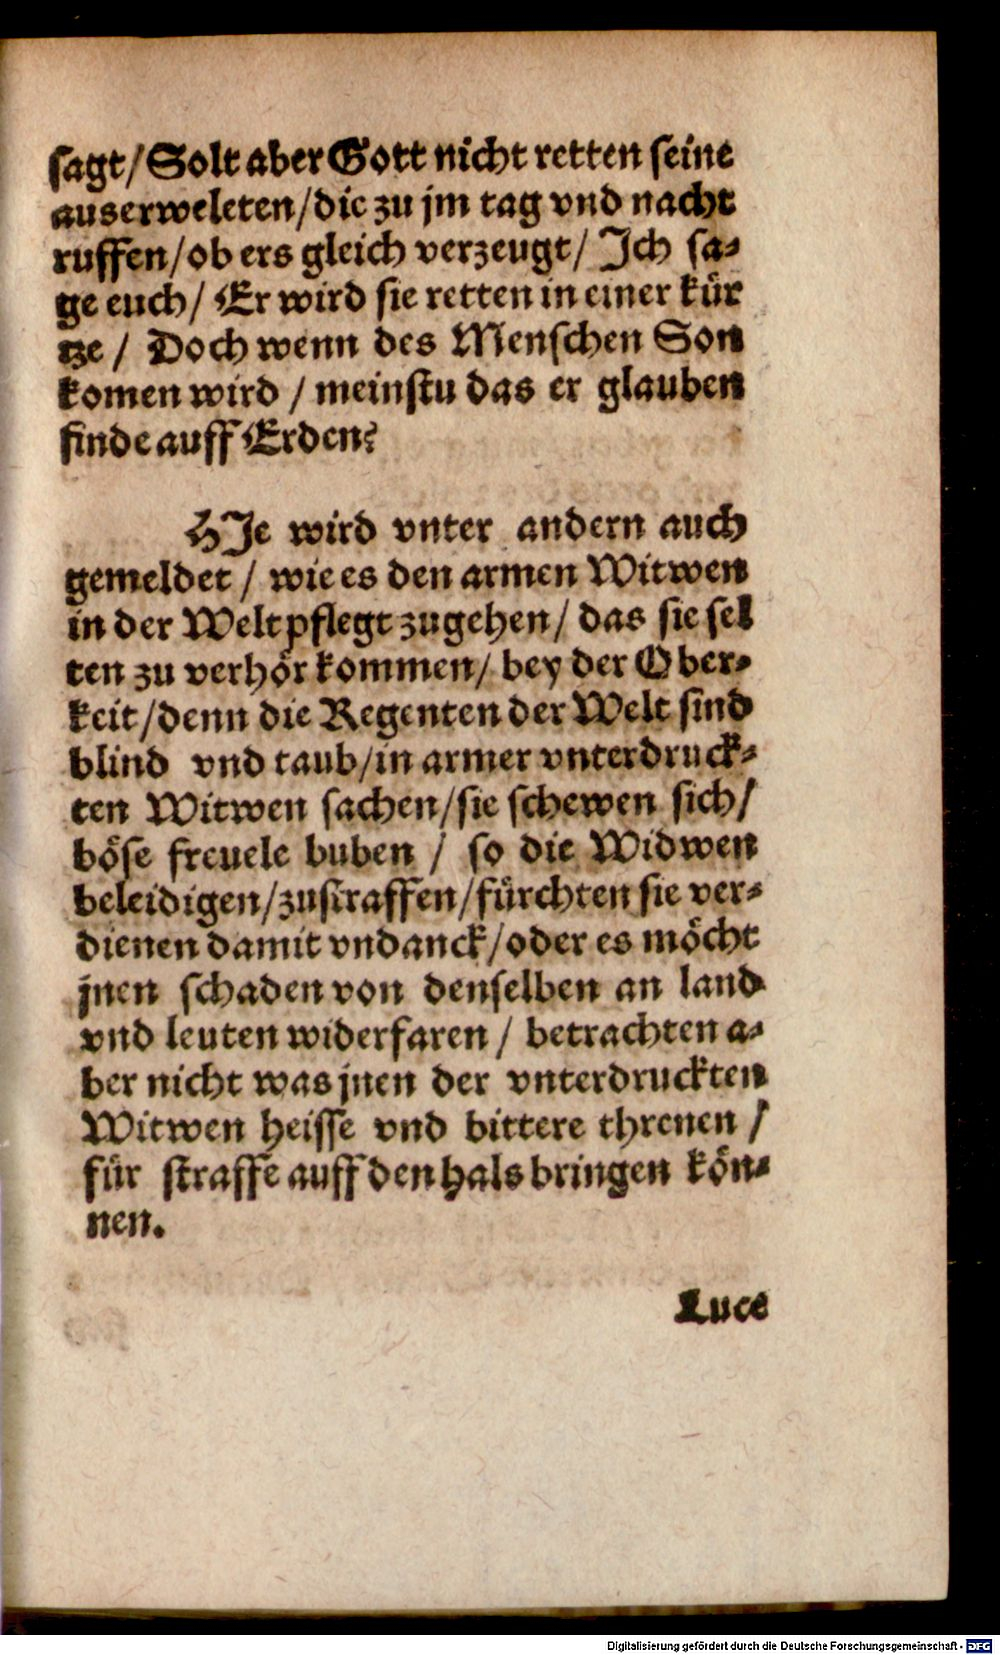 sagt/Solt aber Gott nicht retten seine
auserweleten/die zu jm tag vnd nacht
ruffen/ob ers gleich verzeugt/ Jch sa-
ge euch/ Er wird sie retten in einer kür
tze / Doch wenn des Menschen Son
komen wird / meinstu das er glauben
finde auff Erden?
HJe wird vnter andern auch
gemeldet / wie es den armen Witwen
in der Welt pflegt zugehen/ das sie sel
ten zu verhör kommen/ bey der Ober-
keit/denn die Regenten der Welt sind
blind vnd taub/in armer vnterdruck-
ten Witwen sachen/sie schewen sich/
böse freuele buben / so die Widwen
beleidigen/zustraffen/fürchten sie ver-
dienen damit vndanck/oder es möcht
jnen schaden von denselben an land
vnd leuten widerfaren / betrachten a-
ber nicht was jnen der vnterdruckten
Witwen heisse vnd bittere threnen /
für straffe auff den hals bringen kön-
nen.
Luce
Digitalisierung gefördert durch die Deutsche Forschungsgemeinschaft - DFG